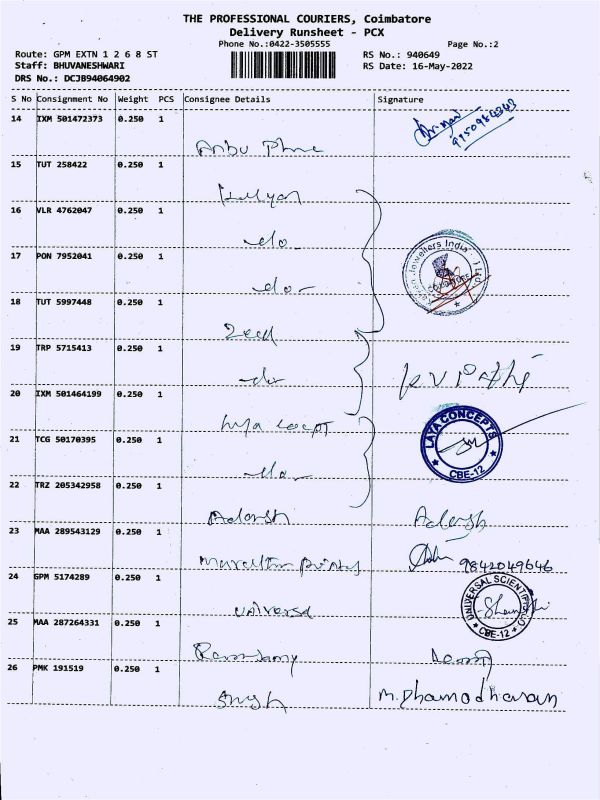 THE PROFESSIONAL COURIERS, Coimbatore
Delivery Runsheet - PCX
Phone No.:0422-3505555
Page No.:2
Route: GPM EXTN 1 2 6 8 ST
RS No.: 940649
Staff: BHUVANESHWARI
RS Date: 16-May-2022
DRS No.: DCJB94064902
S No Consignment No Weight PCS Consignee Details Signature
14 IXM 501472373 0.250 1
Anbu
15 TUT 258422 0.250 1
Kalyan
16 VLR 4762047 0.250 1
-do-
17 PON 7952041 0.250 1
-do-
Jewellers India
18 TUT 5997448 0.250 1
19 TRP 5715413 0.250 1
-do-
K V Pathi
20 IXM 501464199 0.250 1
LAYA CONCEPTS
CBE-12
21 TCG 50170395 0.250 1
-do-
22 TRZ 205342958 0.250 1
Adarsh Adarsh
23 MAA 289543129 0.250 1
9842049646
24 GPM 5174289 0.250 1
Universal
UNIVERSAL SCIENTIFIC
CBE-12
25 MAA 287264331 0.250 1
26 PMK 191519 0.250 1
Singh M. Dhamodharan